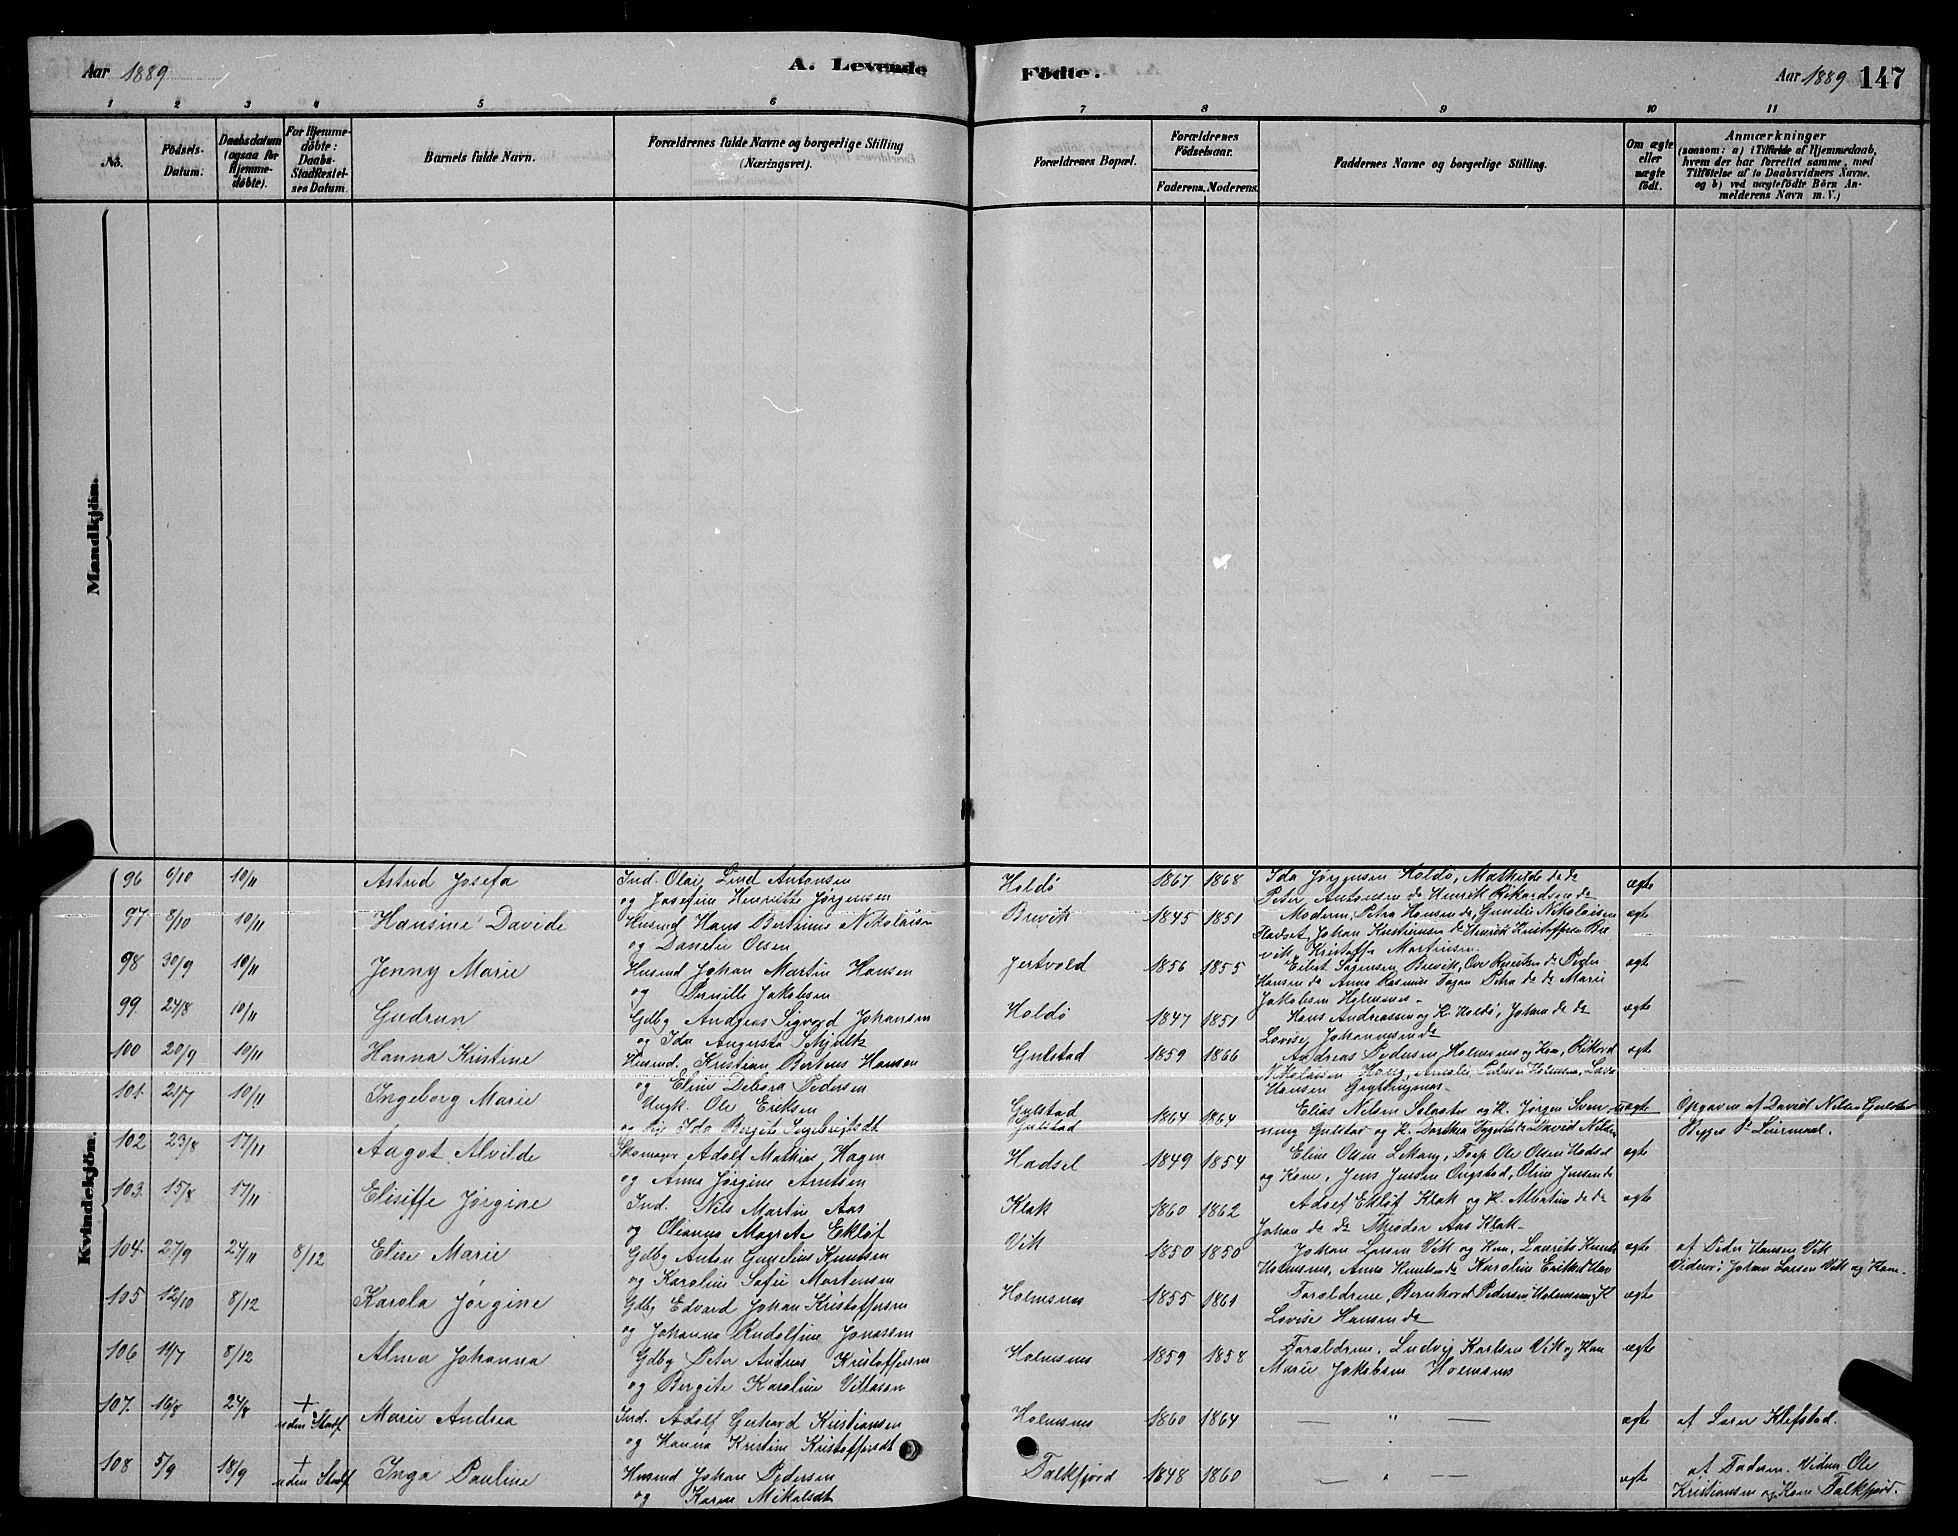 Aar 1889
A. Levende
Födte.
Aar 1889 147
1 2 3 4 5 6 7 8 9 10 11
No.
Födsels-Datum.
Daabsdatum (ogsaa for Hjemme-døbte).
For Hjemme-døbte: Daabs-Stadfæstel-ses Datum.
Barnets fulde Navn.
Forældrenes fulde Navne og borgerlige Stilling (Næringsvei).
Forældrenes Bopæl.
Forældrenes Födselsaar.
Faderens. Moderens.
Faddernes Navne og borgerlige Stilling.
Om ægte eller uægte födt.
Anmærkninger
(saasom: a) i Tilfælde af Hjemmedaab,
hvem der har forrettet samme, med
Tilföielse af to Daabsvidners Navne.
og b) ved uægtefödte Börn An-
melderens Navn m. V.)
Mandkjön.
Kvindekjön.
96 6/10 10/11 Astrid Josefa Ind. Olai Lind Antonsen Holdö 1867 1868 Ida Jørgensen Holdö, Mathilde de de ægte
og Josefine Henriette Jørgensen Peter Antonsen de Henrik Rikardsen de
97 8/10 10/11 Hansine Davide Husmd Hans Bertinus Nikolaisen Brevik 1845 1851 Moderen, Petra Hansen de, Gunelie Nikolaisen ægte
og Danelie Olsen Hadset, Johan Kristiansen de Henrik Kristoffersen Bre
vik, Kristoffer Martinsen.
98 30/9 10/11 Jenny Marie Husmd Johan Martin Hansen Jertvold 1856 1855 Eilert Sørensen Brevik, Ove de Peder ægte
og Pernille Jakobsen Hansen de Anna Rasmus Petra de de Marie
Jakobsen Holmsnes
99. 24/8 10/11 Gudrun Gdbg Andreas Sigvard Johansen Holdö 1847 1851 Hans Andreassen og K. Holdö, Johan de de ægte
og Ida Augusta Mjelle Lovise Johannesen de
100 20/9 10/11 Hanna Kristine Husmd. Kristian Berteus Hansen Gulstad 1859 1866 Andreas Pedersen, Holmsnes og Kone, Rikard ægte
og Eline Debora Pedersen Nikolaisen Haug, Amalie Pedersen Holmsnes, Lava
Hansen Grytting
101. 21/7 10/11 Ingeborg Marie Ungk. Ole Eriksen Gulstad 1864 1864 Elias Nielsen og K. Jørgen Sven uægte Opgaven af David Nilsen Gulstad
og Pige Ida Bergite Sigbrigtsdt Gulstad ning Gulstad og K. Dorthea de David Nilsen
102 23/8 17/11 Aagot Alvilde Skomager Adolf Mathias Hagen Hadsel 1849 1854 Eline Olsen Lekang, Ole Olsen Hadsel ægte
og Anna Jørgine Arntsen og Kone, Jens Jensen Ongstad, Oline Jensen de
103. 15/8 17/11 Elisiffe Jørgine Ind. Nils Martin Aas Klak 1860 1862 Adolf Ekløf Klak og K. Albertine de de ægte
og Olianna Magrete Ekløf Johan de de Theodor Aas Klak
104. 27/9 24/11 8/12 Elise Marie Gdbg Anton Gunelius Knutsen Vik 1850 1850 Johan Larsen Vik og Kone, Laurits Knuts ægte af Peder Hansen Vik
og Karoline Sofie Mortensen Holmsnes, Anna Knutsen de Karoline Eriksd Hav Vidner: Johan Larsen Vik og Kone.
105 12/10 8/12 Karola Jørgine Gdbg Edvard Johan Kristoffersen Holmsnes 1855 1861 Forældrene, Bernhard Pedersen, Holmsnes og K ægte
og Johanna Rudolfine Jonassen Lovise Hansen de
106 11/7 8/12 Alma Johanna Gdbg Peter Andreas Kristoffersen Holmsnes 1859 1858 Forældrene, Ludvig Karlsen Vik og Kone ægte
og Bergite Karoline Marie Jakobsen Holmsnes
107. 16/8 24/8 + uden Stadf Marie Andrea Ind. Adolf Gerhard Kristiansen Holmsnes 1860 1864 — " — ægte af Lærer Klefstad.
og Hanna Kristine Kristoffersdt
108 5/9 18/9 + uden Stadf Inga Pauline Husmd Johan Pedersen Falkfjord 1848 1860 — " — ægte af Faderen. Vidner Ole
og Karen Mikalsdt Kristiansen og Kone Falkfjord.